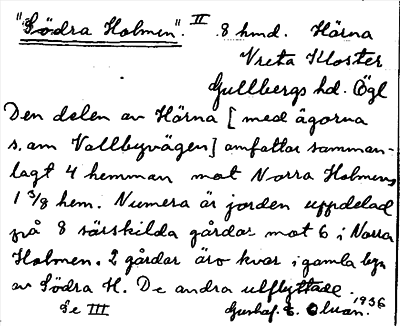 "Södra Holmen". II 8 hmd. Härna
Vreta Kloster
Gullbergs hd. Ögl
Den delen av Härna [med ägorna
s.om Vallbyvägen] omfattar samman-
lagt 4 hemman mot Norra Holmens
1 3/8 hem. Numera är jorden uppdelad
på 8 särskilda gårdar mot 6 i Norra
Holmen. 2 gårdar äro kvar i gamla byn
av Södra H. De andra utflyttade.
Se III Gustaf. E. 1936